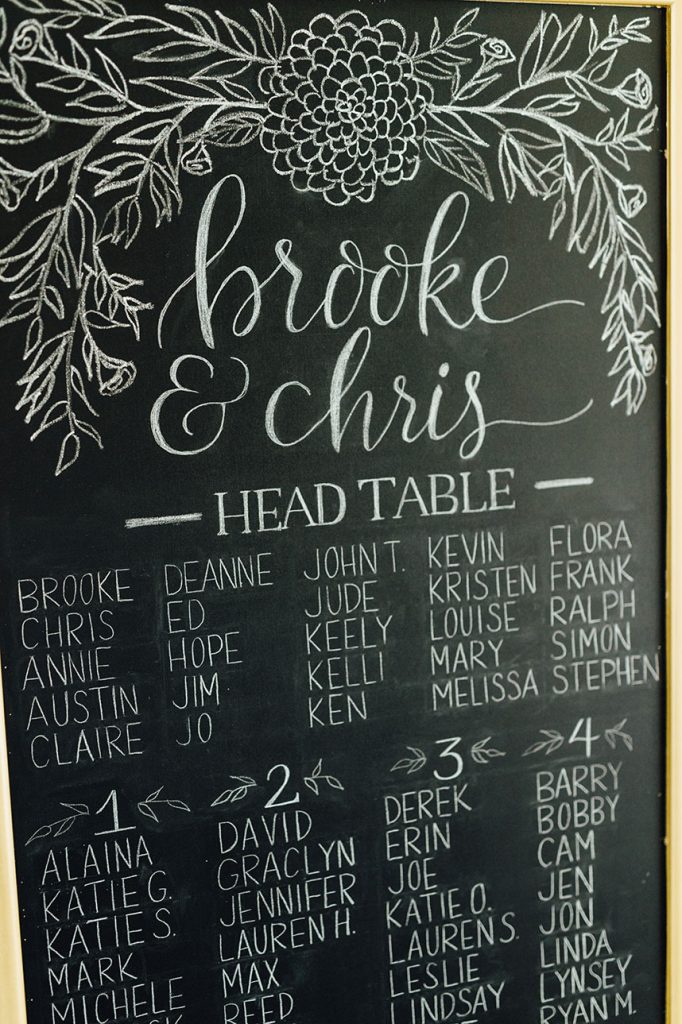 brooke
& chris
HEAD TABLE
BROOKE
CHRIS
ANNIE
AUSTIN
CLAIRE
DEANNE
ED
HOPE
JIM
JO
JOHN T.
JUDE
KEELY
KELLI
KEN
KEVIN
KRISTEN
LOUISE
MARY
MELISSA
FLORA
FRANK
RALPH
SIMON
STEPHEN
1
ALAINA
KATIE G.
KATIE S.
MARK
MICHELE
2
DAVID
GRACLYN
JENNIFER
LAUREN H.
MAX
REED
3
DEREK
ERIN
JOE
KATIE O.
LAUREN S.
LESLIE
LINDSAY
4
BARRY
BOBBY
CAM
JEN
JON
LINDA
LYNSEY
RYAN M.